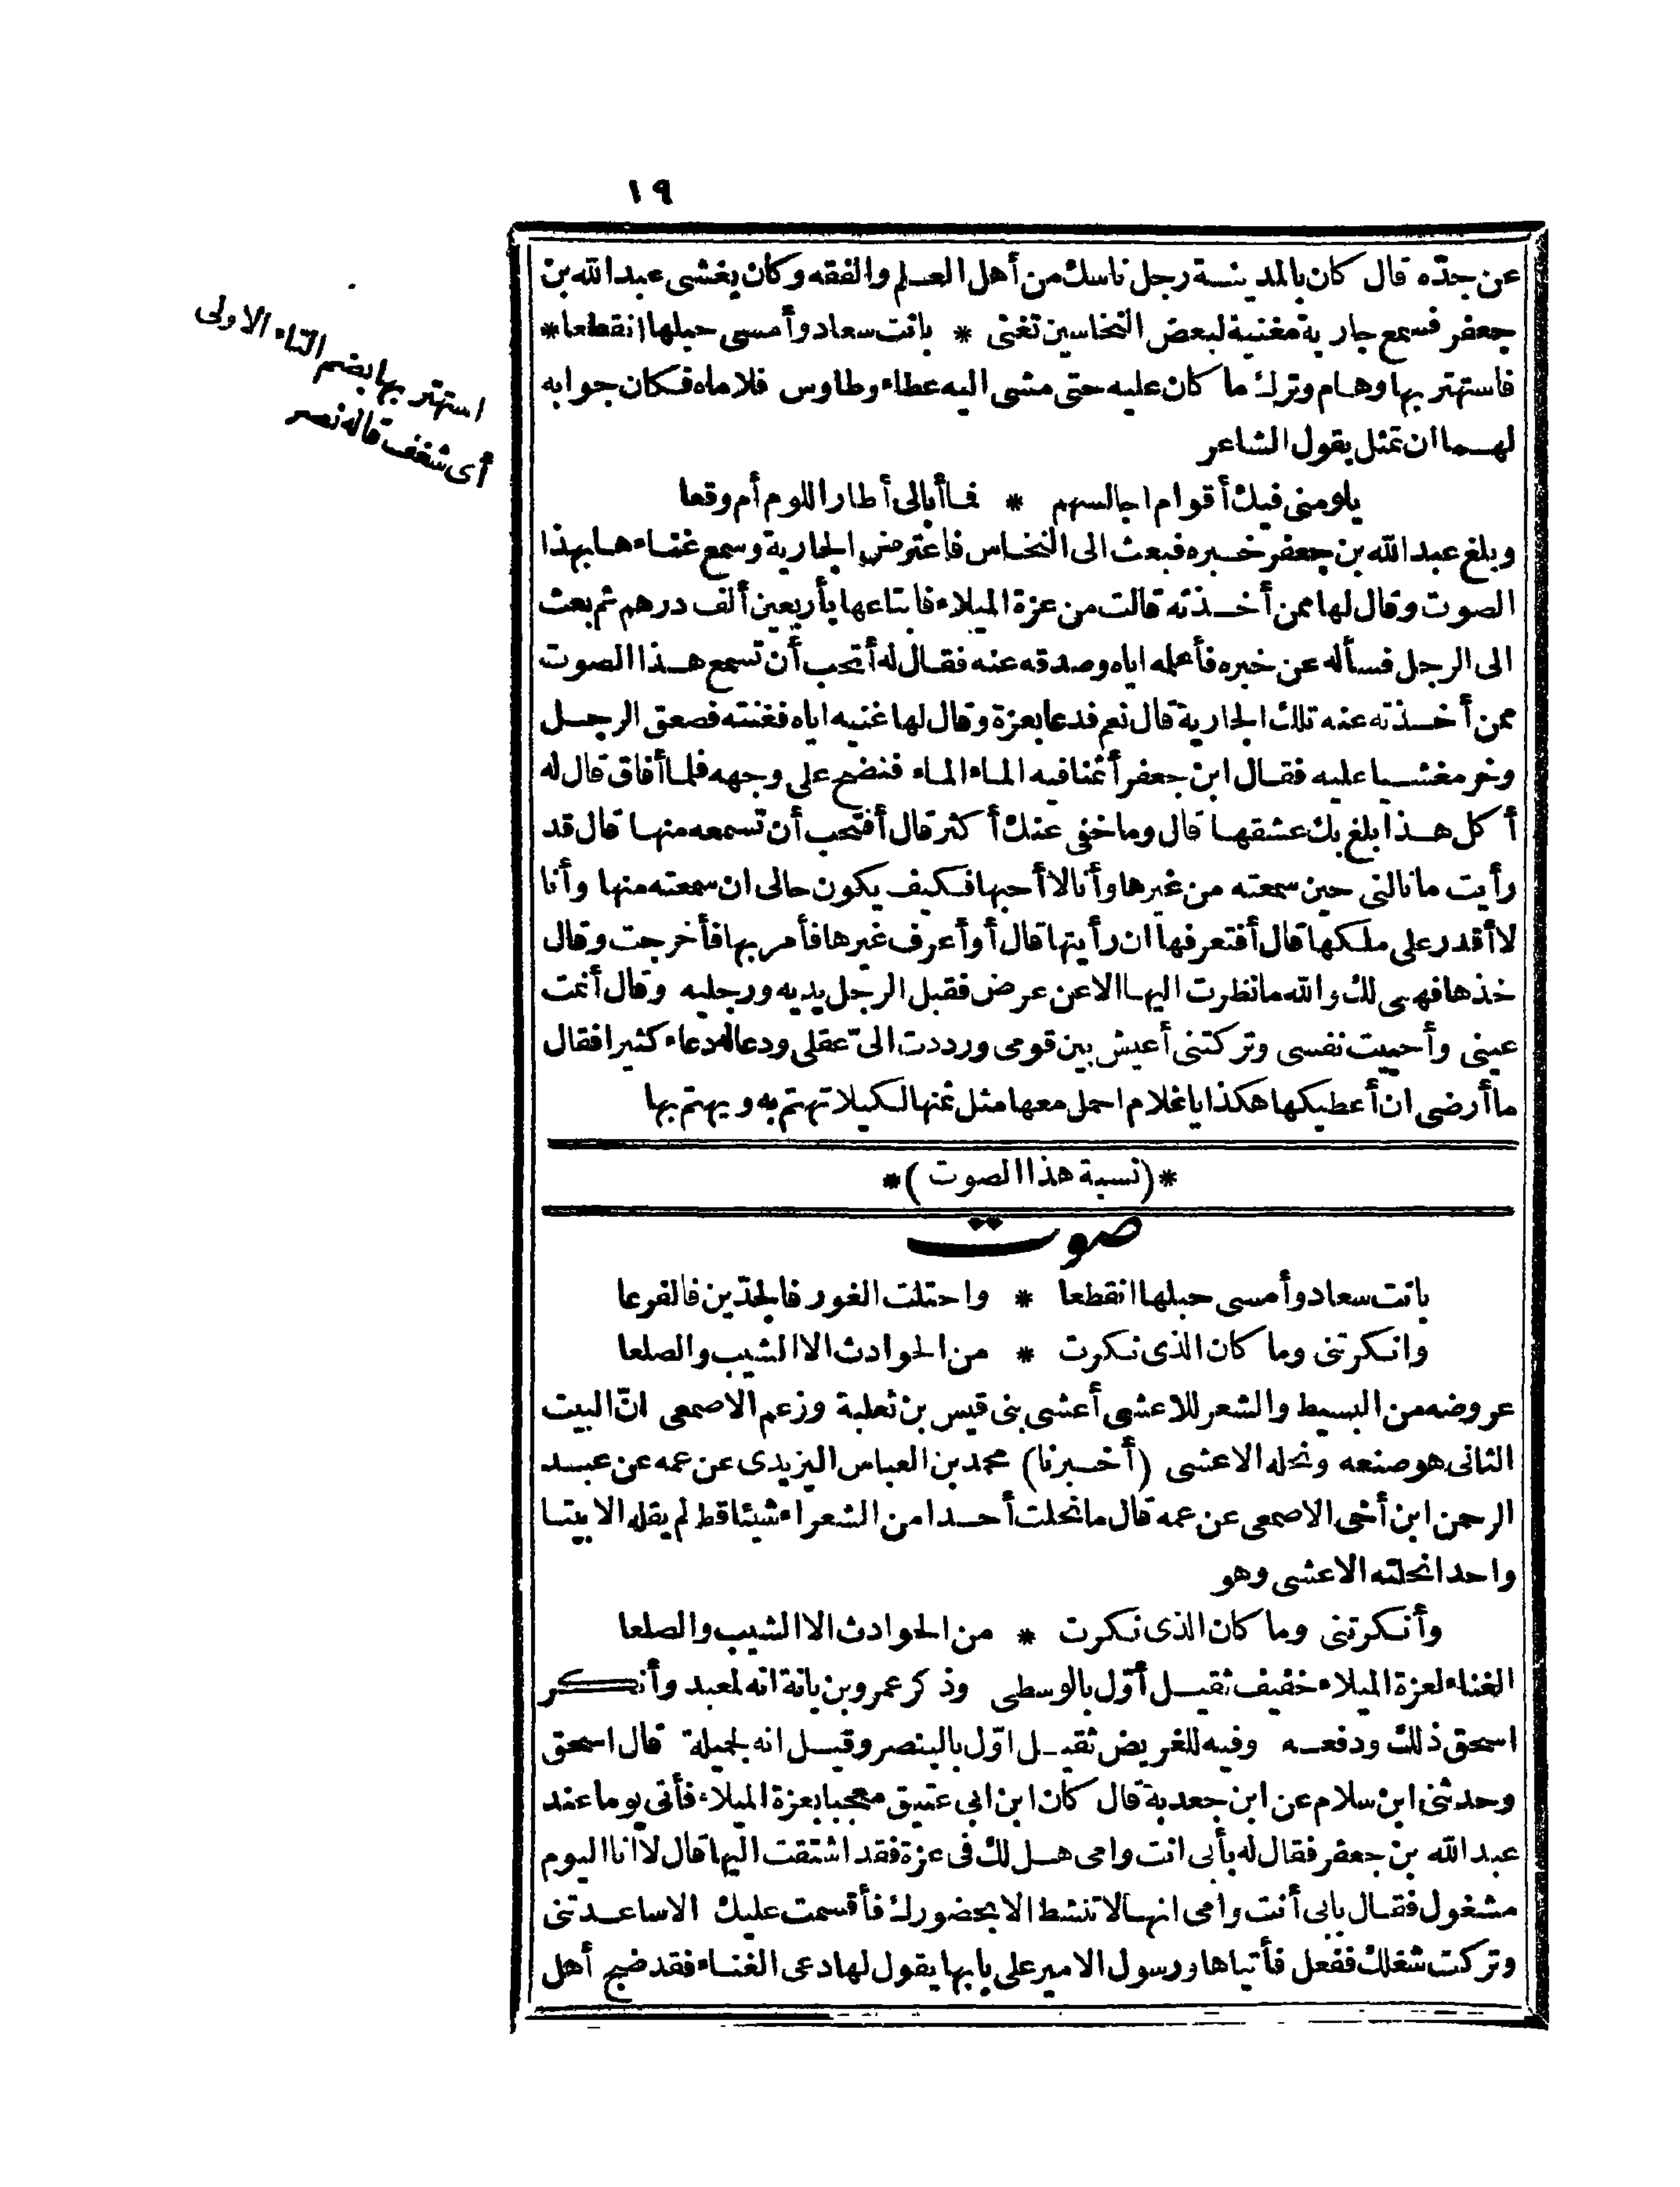 ١٩
عن جدّه قال كان بالمدينة رجل ناسك من أهل العلم والفقه وكان يغشى عبد الله بن
جعفر فسمع جارية مغنية لبعض النخاسين تغنى * بانت سعاد وأمسى حبلها انقطعا *
فاستهتر بها وهام وترك ما كان عليه حتى مشى اليه عطاء وطاوس فلاماه فكان جوابه
لهما ان تمثل بقول الشاعر
يلومنى فيك أقوام اجالسهم * فما أبالى أطار اللوم أم وقعا
وبلغ عبد الله بن جعفر خبره فبعث الى النخاس فاعترض الجارية وسمع غناءها بهذا
الصوت وقال لها ممن أخذته قالت من عزة الميلاء فابتاعها بأربعين ألف درهم ثم بعث
الى الرجل فسأله عن خبره فأعلمه اياه وصدقه عنه فقال له أتحب أن تسمع هذا الصوت
ممن أخذته عنه تلك الجارية قال نعم فدعا بعزة وقال لها غنيه اياه فغنته فصعق الرجل
وخر مغشيا عليه فقال ابن جعفر أثمنا فيه الماء الماء فنضح على وجهه فلما أفاق قال له
أكل هذا بلغ بك عشقها قال وما خفى عنك أكثر قال أفتحب أن تسمعه منها قال قد
رأيت ما نالنى حين سمعته من غيرها وأنا لا أحبها فكيف يكون حالى ان سمعته منها وأنا
لا أقدر على ملكها قال أفتعرفها ان رأيتها قال أو أعرف غيرها فأمر بها فأخرجت وقال
خذها فهى لك والله ما نظرت اليها الا عن عرض فقبل الرجل يديه ورجليه وقال أنمت
عينى وأحييت نفسى وتركتنى أعيش بين قومى ورددت الىّ عقلى ودعا له دعاء كثيرا فقال
ما أرضى ان أعطيكها هكذا يا غلام احمل معها مثل ثمنها لكيلا تهتم به ويهتم بها
استهتر بها بضم التاء الاولى
أى شغف قاله نصر
*(نسبة هذا الصوت)*
صوت
بانت سعاد وأمسى حبلها انقطعا * واحتلت الغور فالجدّين فالفرعا
وانكرتنى وما كان الذى نكرت * من الحوادث الا الشيب والصلعا
عروضه من البسيط والشعر للاعشى أعشى بنى قيس بن ثعلبة وزعم الاصمعى انّ البيت
الثانى هو صنعه ونحله الاعشى (أخبرنا) محمد بن العباس اليزيدى عن عمه عن عبد
الرحمن ابن أخى الاصمعى عن عمه قال ما نحلت أحدا من الشعراء شيئا قط لم يقله الا بيتا
واحدا نحلته الاعشى وهو
وأنكرتنى وما كان الذى نكرت * من الحوادث الا الشيب والصلعا
الغناء لعزة الميلاء خفيف ثقيل أوّل بالوسطى وذكر عمرو بن بانة انه لمعبد وأنكر
اسحق ذلك ودفعه وفيه للغريض ثقيل اوّل بالبنصر وقيل انه لجميلة قال اسحق
وحدثنى ابن سلام عن ابن جعدبة قال كان ابن ابى عتيق معجبا بعزة الميلاء فأتى يوما عند
عبد الله بن جعفر فقال له بأبى انت وامى هل لك فى عزة فقد اشتقت اليها قال لا انا اليوم
مشغول فقال بابى أنت وامى انها لا تنشط الا بحضورك فأقسمت عليك الا ساعدتنى
وتركت شغلك ففعل فأتياها ورسول الامير على بابها يقول لها دعى الغناء فقد ضج أهل